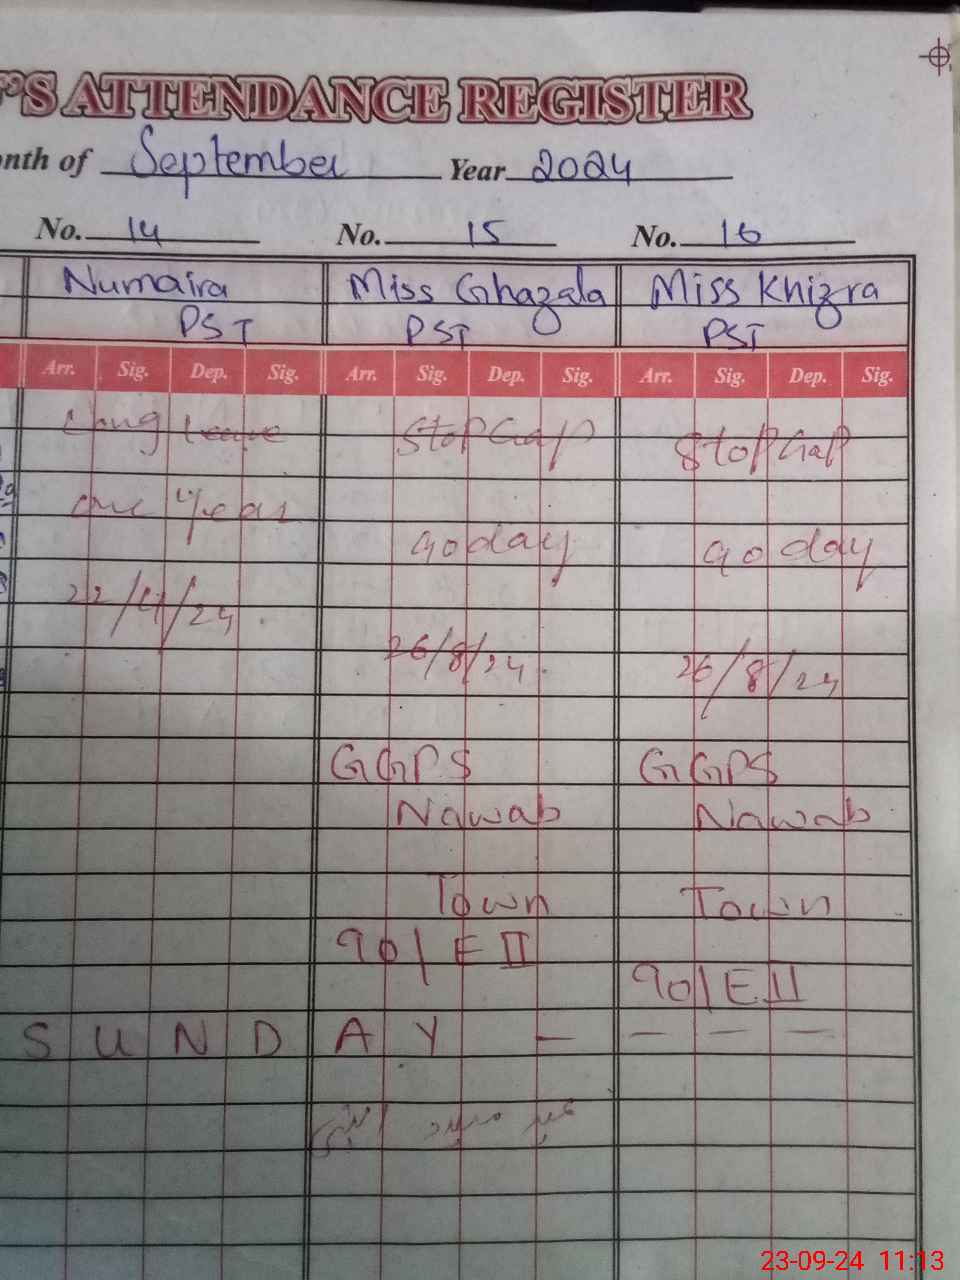 'S ATTENDANCE REGISTER
nth of September Year 2024
No. 14 No. 15 No. 16
Numaira Miss Ghazala Miss Khizra
PST PST PST
Arr. Sig. Dep. Sig. Arr. Sig. Dep. Sig. Arr. Sig. Dep. Sig.
Long leave Stop Gap Stop Gap
one Year
90 day 90 day
22/4/24
26/8/24 26/8/24
GGPS GGPS
Nawab Nawab
Town Town
90/E II
90/E II
S U N D A Y - - - -
عید میلاد النبی
23-09-24 11:13